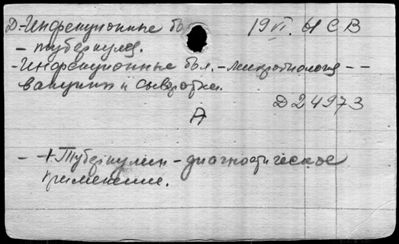 Д-Инфекционные бол 19 VI. 61 СВ
- туберкулез.
- Инфекционные бол. - микробиология - -
вакцины и сыворотки.
Д24973
А
- + Туберкулин - диагностическое
применение.